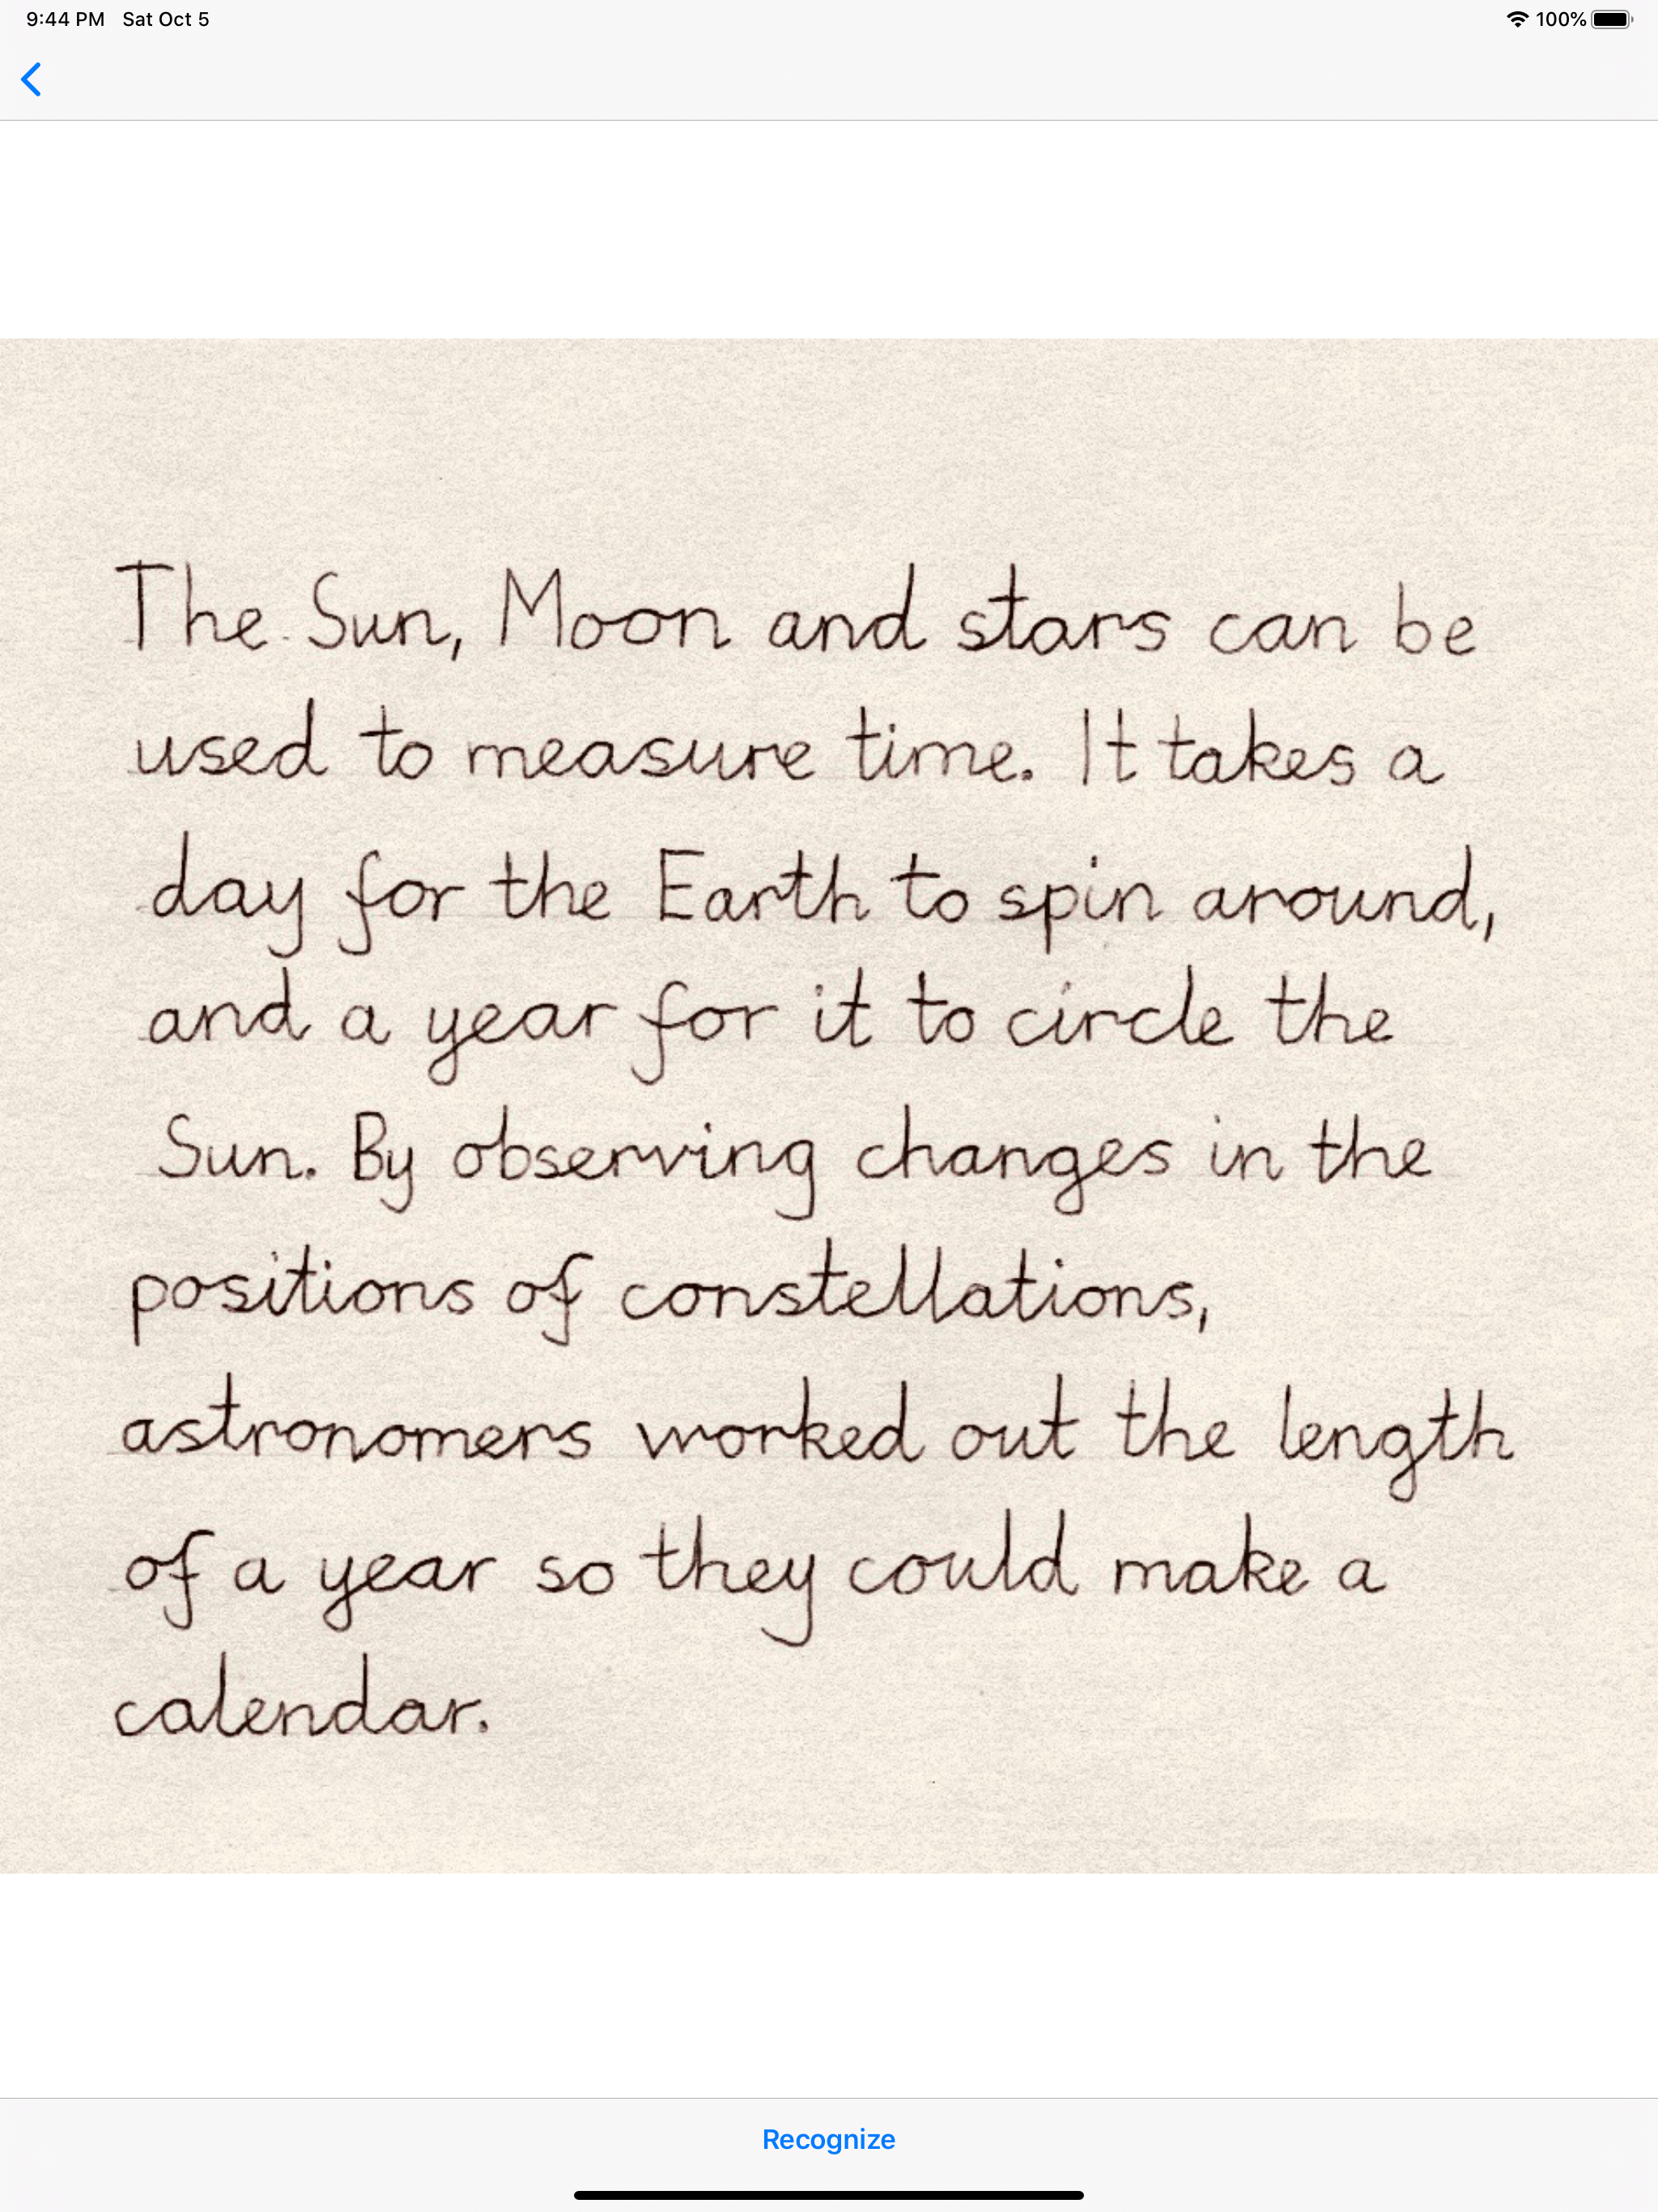 9:44 PM Sat Oct 5 100%
The Sun, Moon and stars can be
used to measure time. It takes a
day for the Earth to spin around,
and a year for it to circle the
Sun. By observing changes in the
positions of constellations,
astronomers worked out the length
of a year so they could make a
calendar.
Recognize